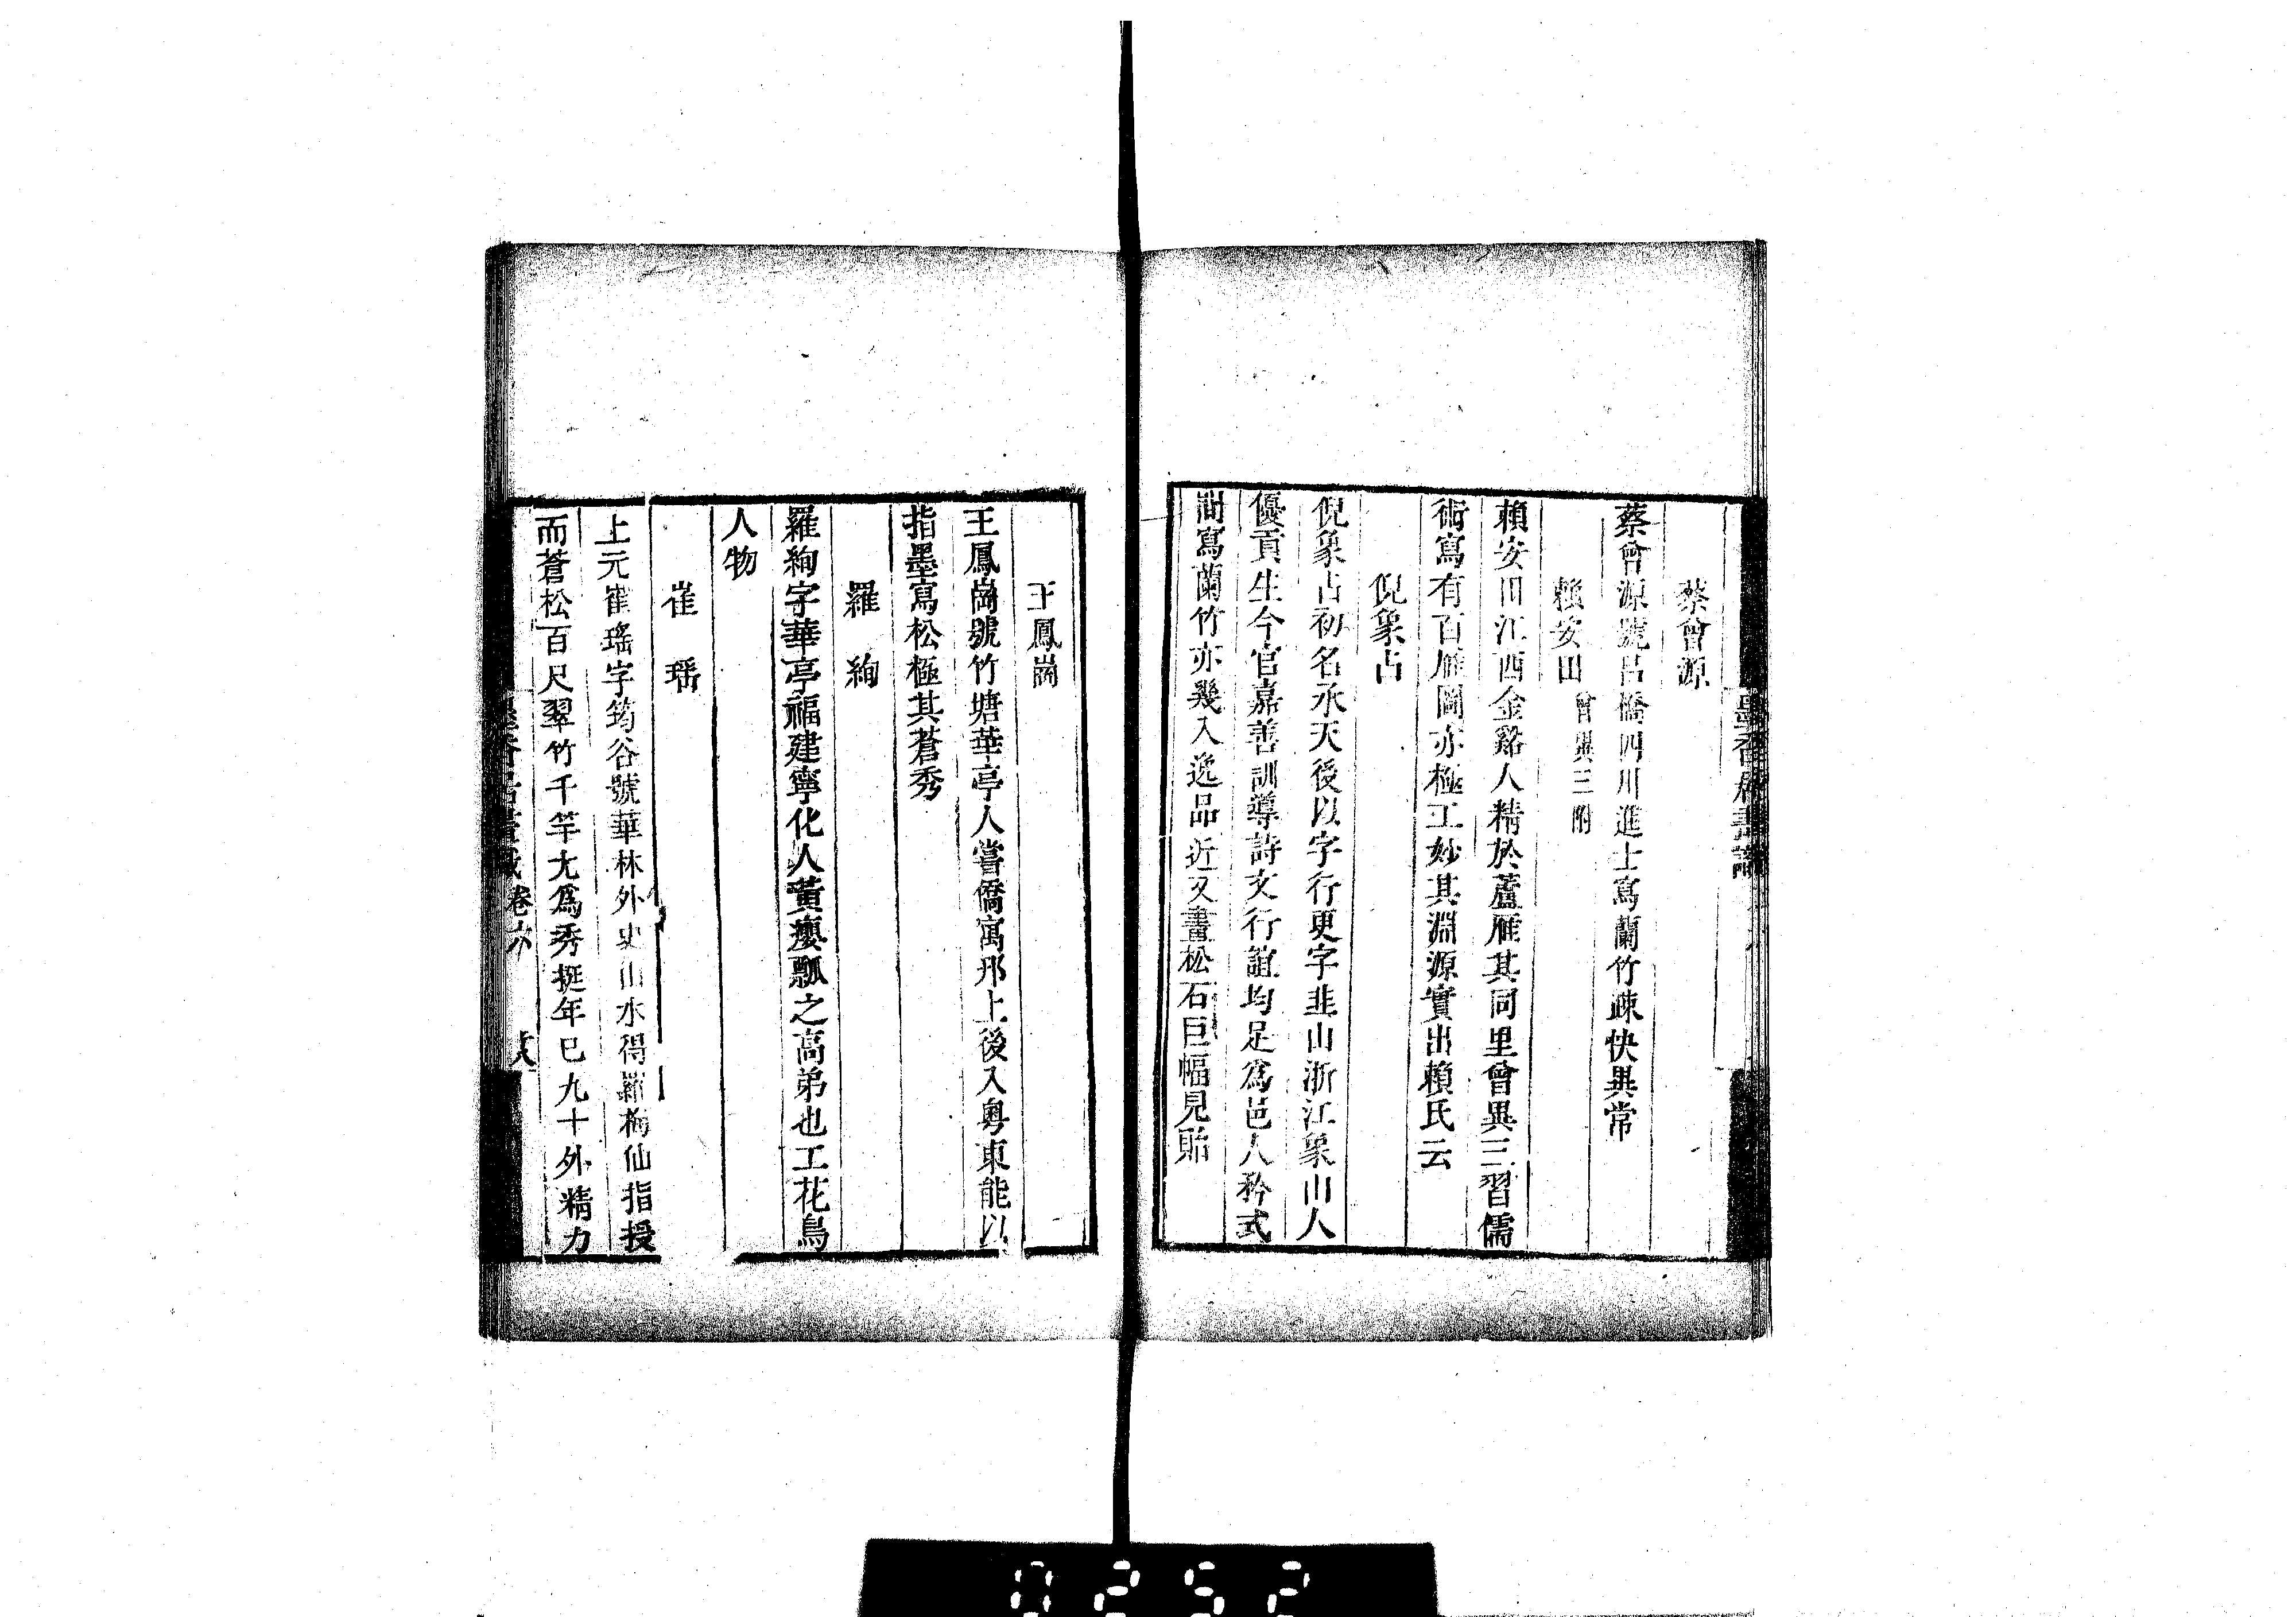 蔡曾源
蔡曾源號呂橋四川進士寫蘭竹疎快異常
賴安田曾異三附
賴安田江西金谿人精於蘆雁其同里曾異三習儒
術寫有百雁圖亦極工妙其淵源實出賴氏云
倪象占
倪象占初名承天後以字行更字韭山浙江象山人
優貢生今官嘉善訓導詩文行誼均足爲邑人矜式
間寫蘭竹亦幾入逸品近又畫松石巨幅見貽
王鳳崗
王鳳崗號竹塘華亭人嘗僑寓邗上後入粵東能以
指墨寫松極其蒼秀
羅絢
羅絢字華亭福建寧化人黃癭瓢之高弟也工花鳥
人物
崔瑤
上元崔瑤字筠谷號華林外史山水得羅梅仙指授
而蒼松百尺翠竹千竿尤爲秀挺年已九十外精力
墨香居畫識卷六
0252